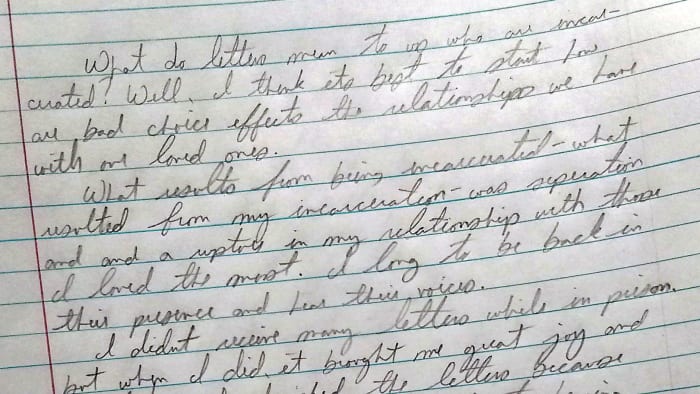 What do letters mean to us who are incar-
cerated? Well, I think its best to start how
are bad choice effects the relationships we have
with our loved ones.
What results from being incarcerated - what
resulted from my incarceration - was seperation
and and a rupture in my relationship with those
I loved the most. I long to be back in
their presence and hear their voices.
I didnt receive many letters while in prison.
but when I did, it brought me great joy and
the letters because